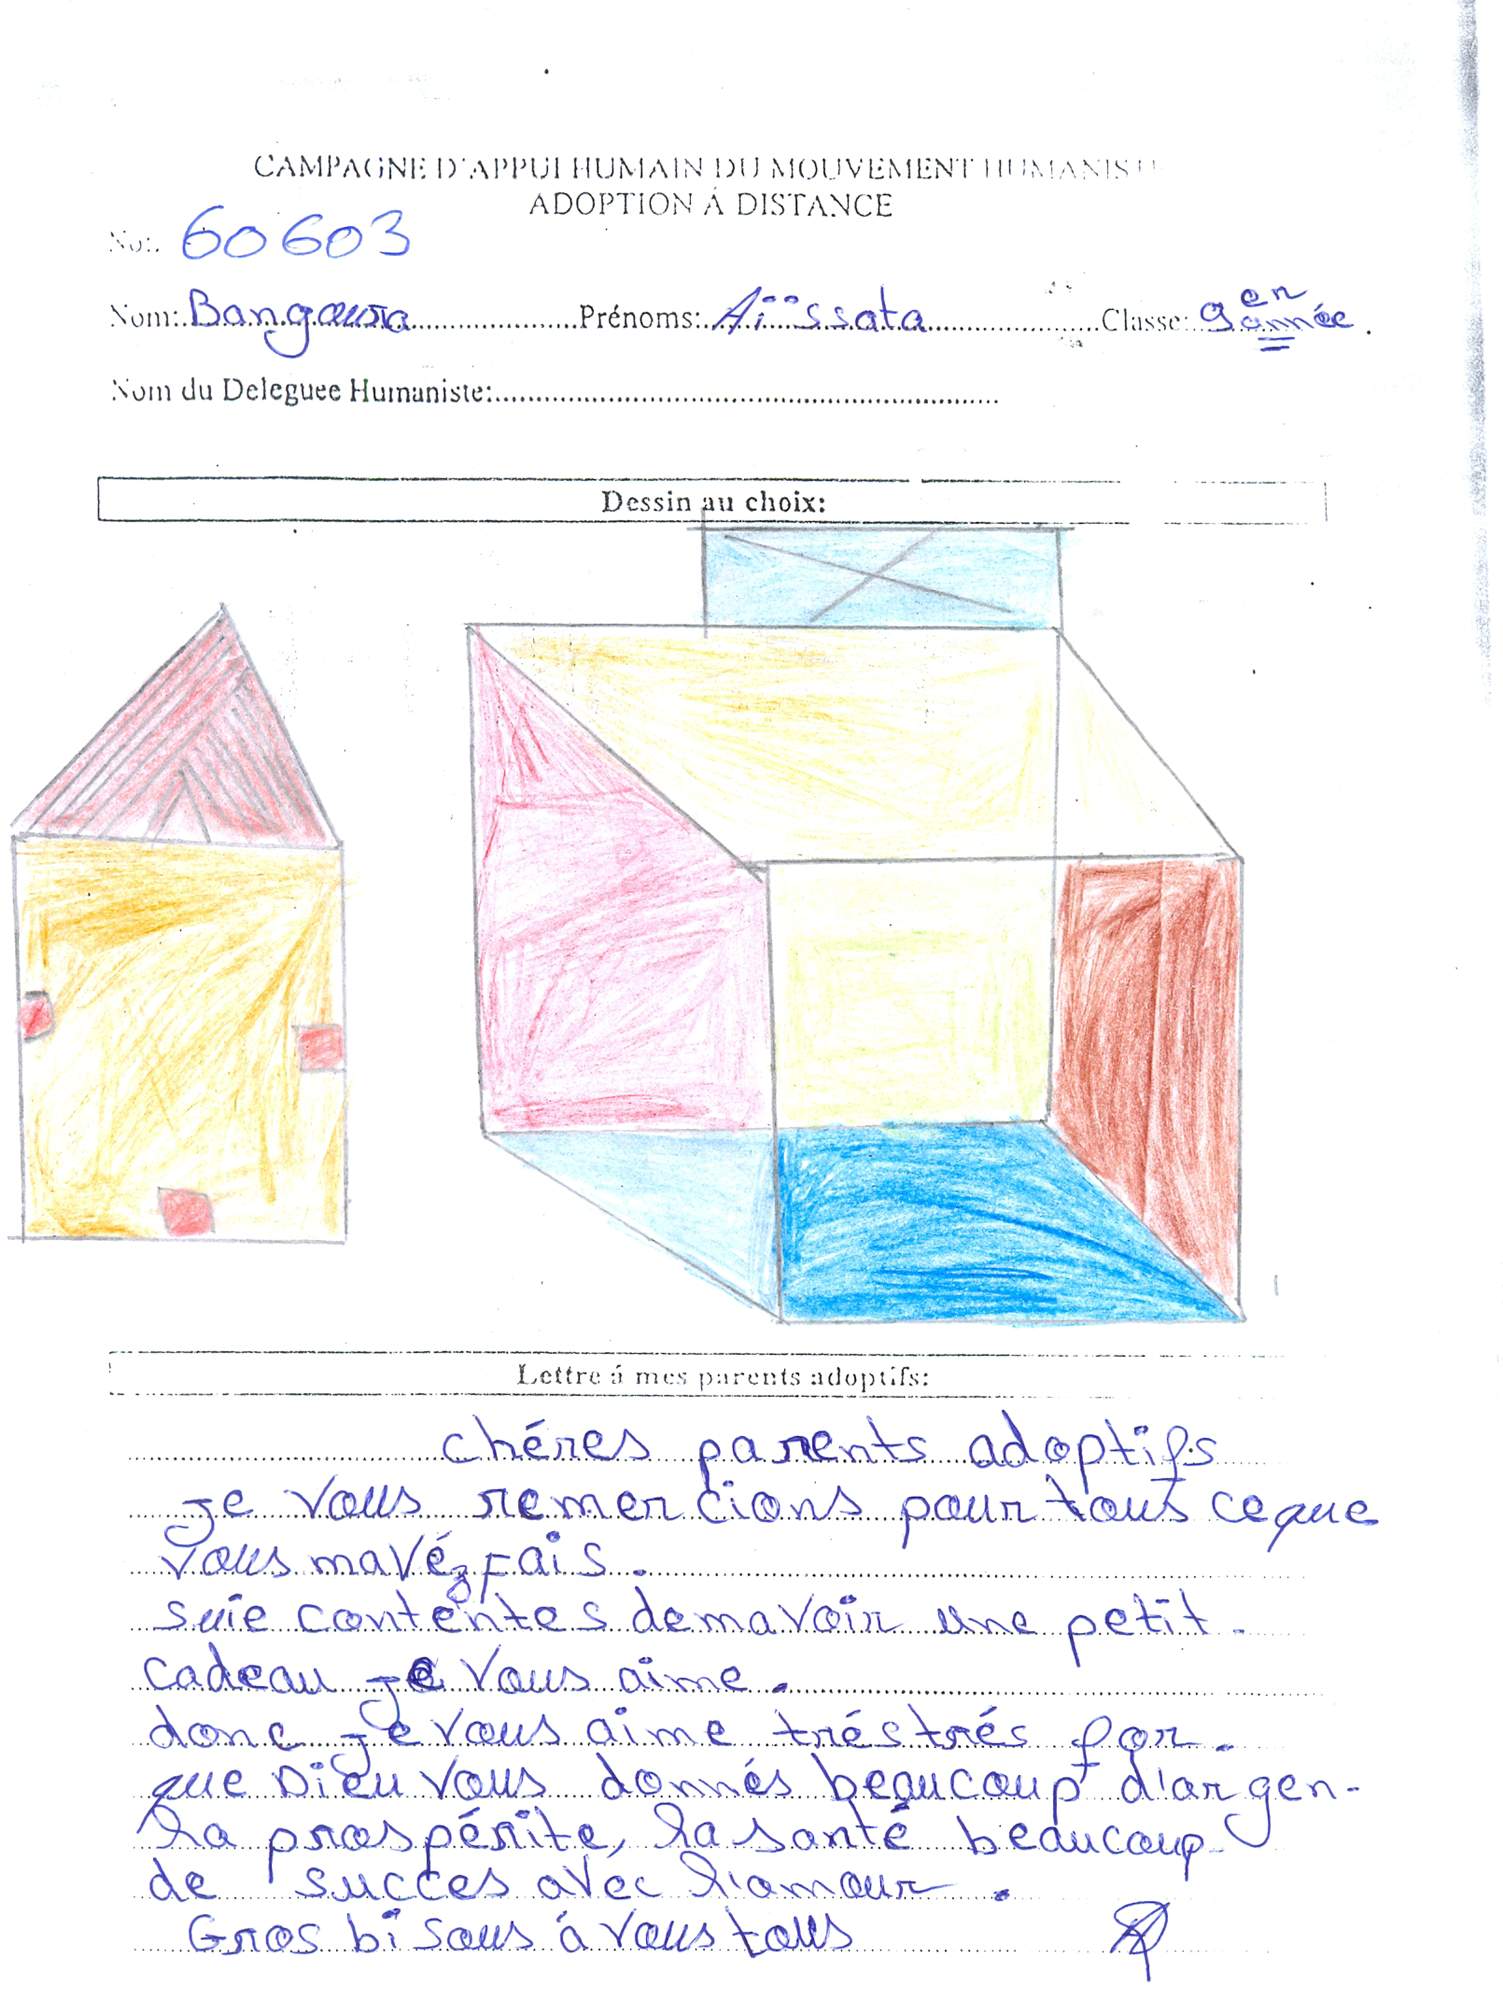 CAMPAGNE D'APPUI HUMAIN DU MOUVEMENT HUMANISTE
ADOPTION Á DISTANCE
No: 60603
Nom: Bangoura Prénoms: Aïssata Classe: 9en année
Nom du Deleguee Humaniste:
Dessin au choix:
Lettre á mes parents adoptifs:
chéres parents adoptifs
je vous remercions pour tous ce que
vous mavéz fais.
suie contentes de mavoir une petit.
cadeau je vous aime.
donc je vous aime trés trés for.
que Dieu vous donnés beaucoup d'argent-
la prospérite, la santé beaucoup
de succes avec l'amour.
Gros bisous á vous tous